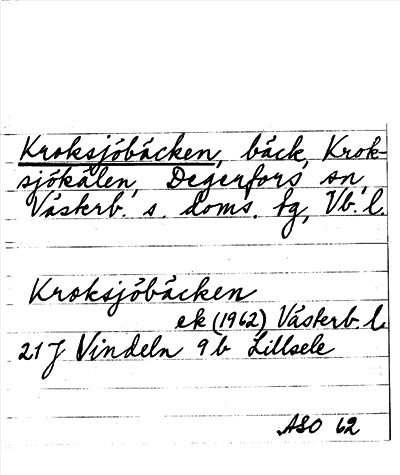 Kroksjöbäcken, bäck, Krok-
sjökålen, Degerfors sn,
Västerb. s. doms. tg, Vb. l.
Kroksjöbäcken
ek (1962) Västerb. l.
21 J Vindeln 9 b Lillsele
ASO 62